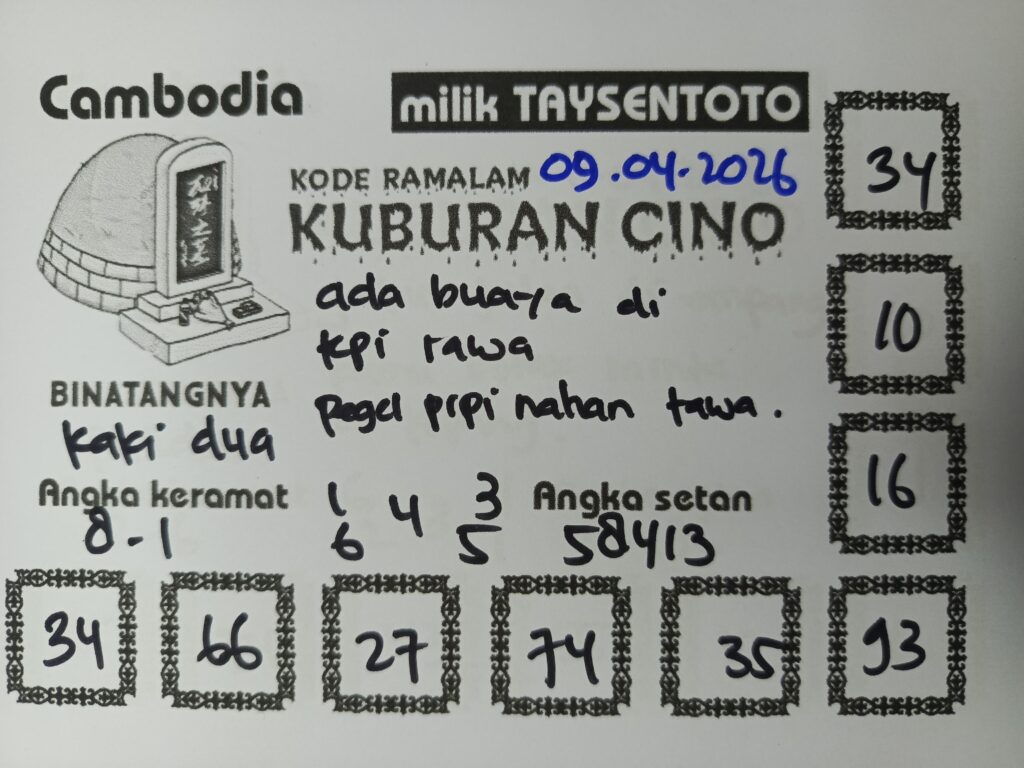 Cambodia
milik TAYSENTOTO
KODE RAMALAM 09.04.2026
KUBURAN CINO
ada buaya di
kpi rawa
pegel prpi nahan tawa.
BINATANGNYA
kaki dua
Angka keramat
8-1
1 4 3
6 5
Angka setan
58413
34
10
16
34 66 27 74 35 93